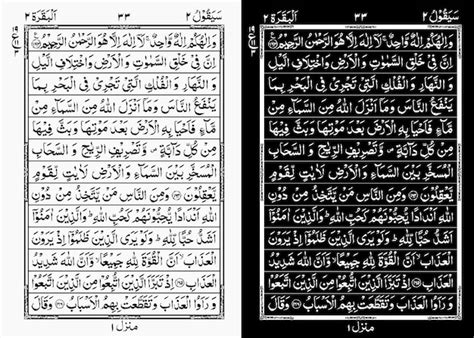 سَيَقُوْلُ ٢ ٣٣ اَلْبَقَرَة ٢
وَاِلٰهُكُمْ اِلٰهٌ وَّاحِدٌ ۚ لَآ اِلٰهَ اِلَّا هُوَ الرَّحْمٰنُ الرَّحِيْمُ ﴿١٦٣﴾
اِنَّ فِيْ خَلْقِ السَّمٰوٰتِ وَالْاَرْضِ وَاخْتِلَافِ الَّيْلِ
وَالنَّهَارِ وَالْفُلْكِ الَّتِيْ تَجْرِيْ فِي الْبَحْرِ بِمَا
يَنْفَعُ النَّاسَ وَمَآ اَنْزَلَ اللّٰهُ مِنَ السَّمَآءِ مِنْ
مَّآءٍ فَاَحْيَا بِهِ الْاَرْضَ بَعْدَ مَوْتِهَا وَبَثَّ فِيْهَا
مِنْ كُلِّ دَآبَّةٍ ۪ وَّتَصْرِيْفِ الرِّيٰحِ وَالسَّحَابِ
الْمُسَخَّرِ بَيْنَ السَّمَآءِ وَالْاَرْضِ لَاٰيٰتٍ لِّقَوْمٍ
يَّعْقِلُوْنَ ﴿١٦٤﴾ وَمِنَ النَّاسِ مَنْ يَّتَّخِذُ مِنْ دُوْنِ
اللّٰهِ اَنْدَادًا يُّحِبُّوْنَهُمْ كَحُبِّ اللّٰهِ ؕ وَالَّذِيْنَ اٰمَنُوْٓا
اَشَدُّ حُبًّا لِّلّٰهِ ؕ وَلَوْ يَرَى الَّذِيْنَ ظَلَمُوْٓا اِذْ يَرَوْنَ
الْعَذَابَ ۙ اَنَّ الْقُوَّةَ لِلّٰهِ جَمِيْعًا ۙ وَّاَنَّ اللّٰهَ شَدِيْدُ
الْعَذَابِ ﴿١٦٥﴾ اِذْ تَبَرَّاَ الَّذِيْنَ اتُّبِعُوْا مِنَ الَّذِيْنَ اتَّبَعُوْا
وَرَاَوُا الْعَذَابَ وَتَقَطَّعَتْ بِهِمُ الْاَسْبَابُ ﴿١٦٦﴾ وَقَالَ
منزل ١
سَيَقُوْلُ ٢ ٣٣ اَلْبَقَرَة ٢
وَاِلٰهُكُمْ اِلٰهٌ وَّاحِدٌ ۚ لَآ اِلٰهَ اِلَّا هُوَ الرَّحْمٰنُ الرَّحِيْمُ ﴿١٦٣﴾
اِنَّ فِيْ خَلْقِ السَّمٰوٰتِ وَالْاَرْضِ وَاخْتِلَافِ الَّيْلِ
وَالنَّهَارِ وَالْفُلْكِ الَّتِيْ تَجْرِيْ فِي الْبَحْرِ بِمَا
يَنْفَعُ النَّاسَ وَمَآ اَنْزَلَ اللّٰهُ مِنَ السَّمَآءِ مِنْ
مَّآءٍ فَاَحْيَا بِهِ الْاَرْضَ بَعْدَ مَوْتِهَا وَبَثَّ فِيْهَا
مِنْ كُلِّ دَآبَّةٍ ۪ وَّتَصْرِيْفِ الرِّيٰحِ وَالسَّحَابِ
الْمُسَخَّرِ بَيْنَ السَّمَآءِ وَالْاَرْضِ لَاٰيٰتٍ لِّقَوْمٍ
يَّعْقِلُوْنَ ﴿١٦٤﴾ وَمِنَ النَّاسِ مَنْ يَّتَّخِذُ مِنْ دُوْنِ
اللّٰهِ اَنْدَادًا يُّحِبُّوْنَهُمْ كَحُبِّ اللّٰهِ ؕ وَالَّذِيْنَ اٰمَنُوْٓا
اَشَدُّ حُبًّا لِّلّٰهِ ؕ وَلَوْ يَرَى الَّذِيْنَ ظَلَمُوْٓا اِذْ يَرَوْنَ
الْعَذَابَ ۙ اَنَّ الْقُوَّةَ لِلّٰهِ جَمِيْعًا ۙ وَّاَنَّ اللّٰهَ شَدِيْدُ
الْعَذَابِ ﴿١٦٥﴾ اِذْ تَبَرَّاَ الَّذِيْنَ اتُّبِعُوْا مِنَ الَّذِيْنَ اتَّبَعُوْا
وَرَاَوُا الْعَذَابَ وَتَقَطَّعَتْ بِهِمُ الْاَسْبَابُ ﴿١٦٦﴾ وَقَالَ
منزل ١